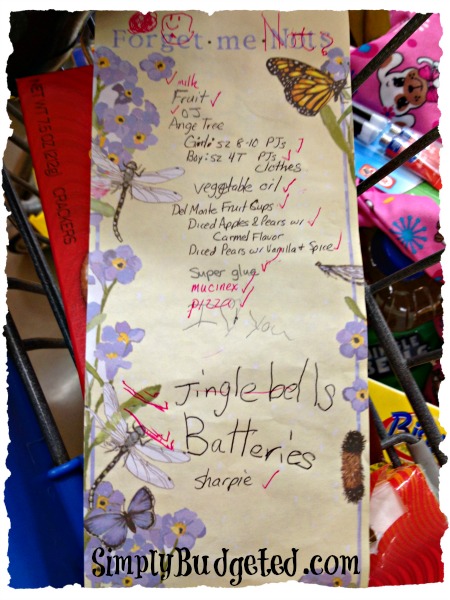 Forget·me·Nots
Nots
milk
Fruit
OJ
Ange Tree
Girl: sz 8-10 PJs
Boy: sz 4T PJs
Clothes
vegetable oil
Del Monte Fruit Cups
Diced Apples & Pears w/
Carmel Flavor
Diced Pears w/ Vanilla + Spice
Super glue
mucinex
pizza
I you
Jingle bells
Batteries
sharpie
NET WT 7.5 OZ (212g)
CRACKERS
SimplyBudgeted.com